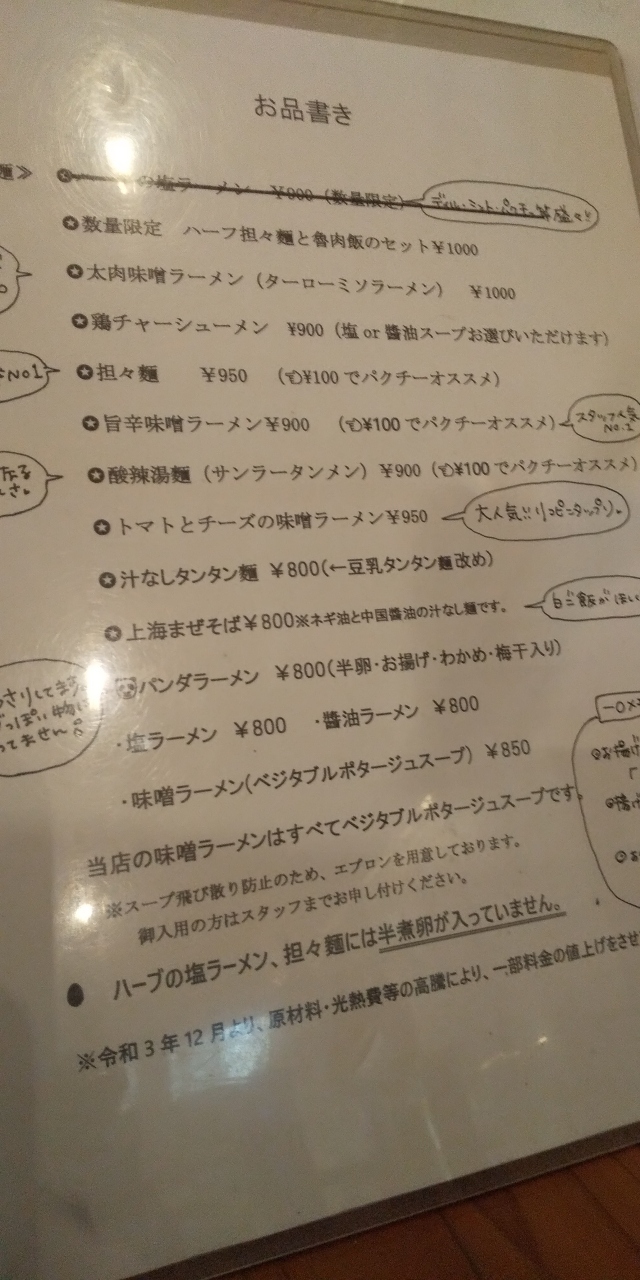 お品書き
麺≫
の塩ラーメン ¥900（数量限定）
ディル・ミント・パクチー
✪数量限定 ハーフ担々麺と魯肉飯のセット¥1000
✪太肉味噌ラーメン（ターローミソラーメン） ¥1000
✪鶏チャーシューメン ¥900（塩 or 醬油スープお選びいただけます）
NO1
✪担々麺 ¥950 （👈¥100 でパクチーオススメ）
✪旨辛味噌ラーメン¥900 （👈¥100 でパクチーオススメ）
スタッフ人気
✪酸辣湯麺（サンラータンメン）¥900（👈¥100 でパクチーオススメ）
✪トマトとチーズの味噌ラーメン¥950
大人気!!リコピンタップリ。
✪汁なしタンタン麺 ¥800(←豆乳タンタン麺改め)
✪上海まぜそば¥800※ネギ油と中国醬油の汁なし麺です。
白ご飯がほし
🐼パンダラーメン ¥800(半卵・お揚げ・わかめ・梅干入り)
さりしてます
っぽい物
ってません
・塩ラーメン ¥800 ・醬油ラーメン ¥800
・味噌ラーメン(ベジタブルポタージュスープ) ¥850
お揚げ
当店の味噌ラーメンはすべてベジタブルポタージュスープです。
※スープ飛び散り防止のため、エプロンを用意しております。
御入用の方はスタッフまでお申し付けください。
● ハーブの塩ラーメン、担々麺には半煮卵が入っていません。
※令和 3 年 12 月より、原材料・光熱費等の高騰により、一部料金の値上げをさせ